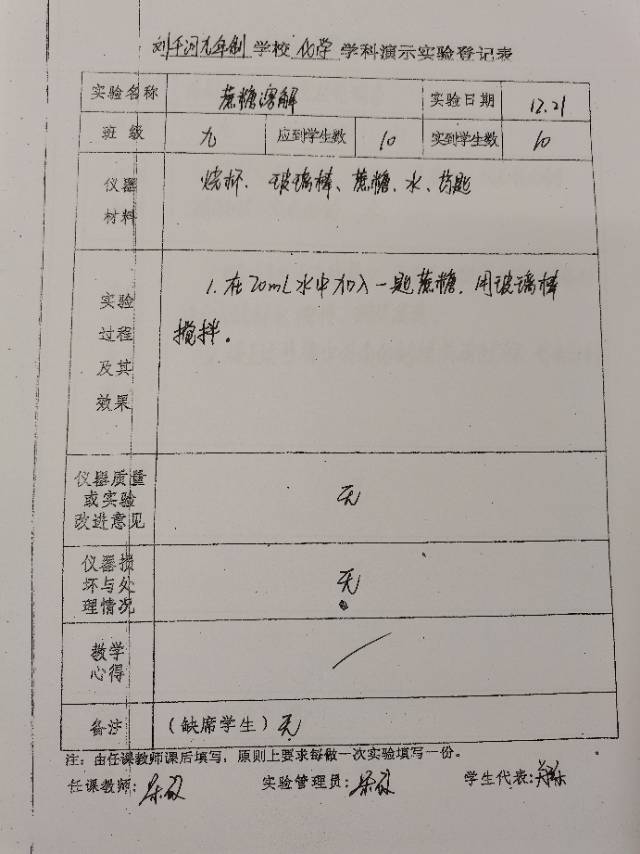 九年制 学校 化学 学科演示实验登记表
实验名称 蔗糖溶解 实验日期 12.21
班 级 九 应到学生数 10 实到学生数 10
仪器 烧杯、玻璃棒、蔗糖、水、药匙
材料
实验 1.在20mL水中加入一匙蔗糖,用玻璃棒
过程 搅拌。
及其
效果
仪器质量
或实验 无
改进意见
仪器损
坏与处 无
理情况
教学
心得
备注 (缺席学生)无
注:由任课教师课后填写,原则上要求每做一次实验填写一份。
任课教师: 实验管理员: 学生代表: